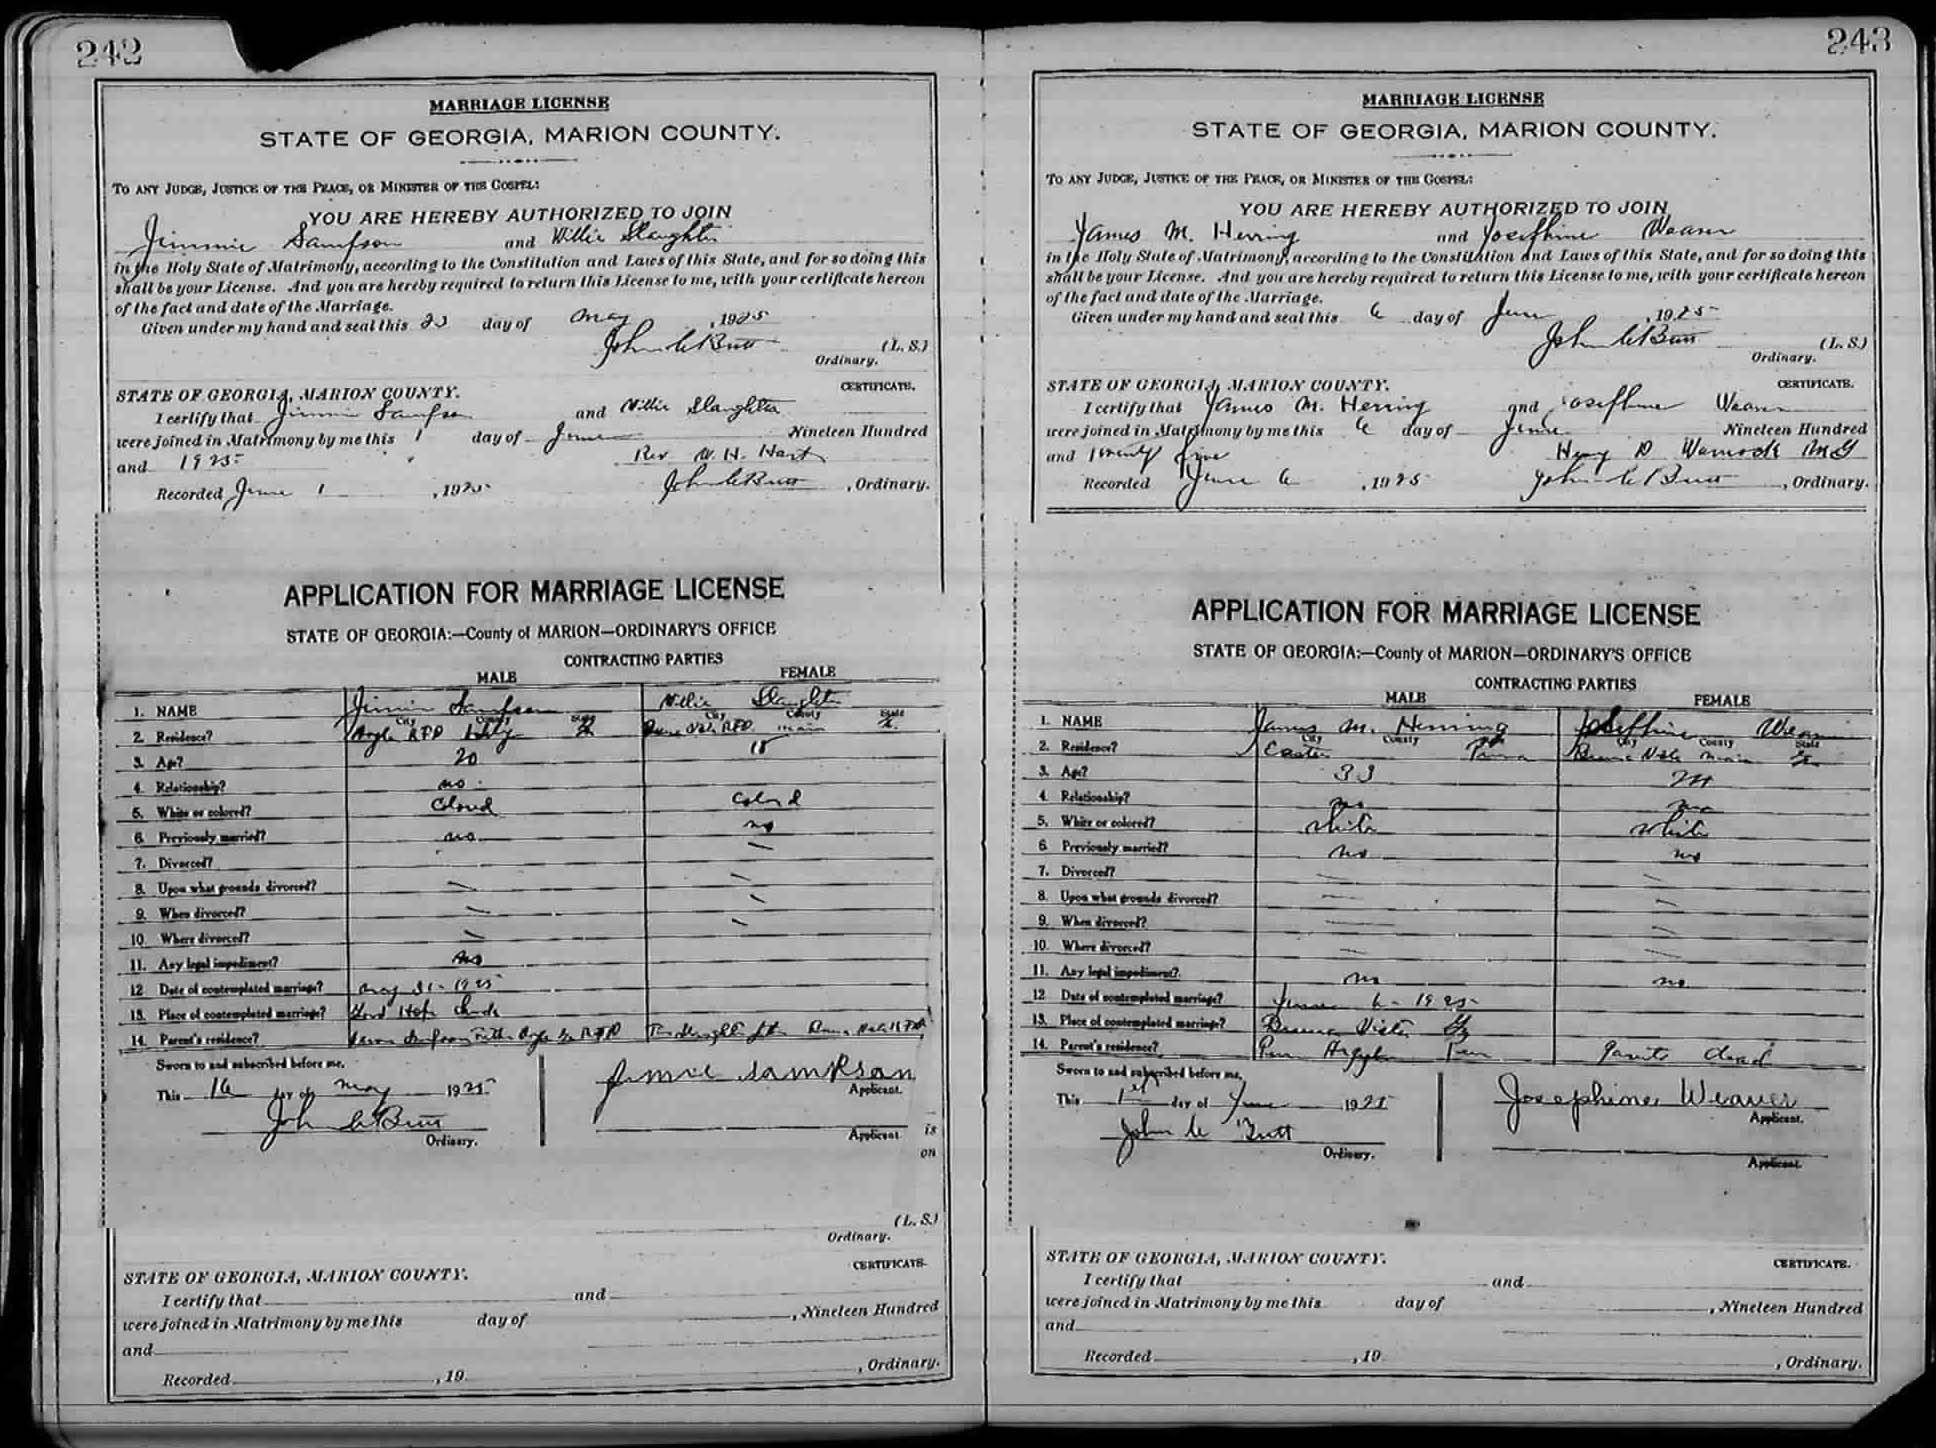 242
MARRIAGE LICENSE
STATE OF GEORGIA, MARION COUNTY.
TO ANY JUDGE, JUSTICE OF THE PEACE, OR MINISTER OF THE GOSPEL:
YOU ARE HEREBY AUTHORIZED TO JOIN
Jimmie Sampson and Willie Slaughter
in the Holy State of Matrimony, according to the Constitution and Laws of this State, and for so doing this
shall be your License. And you are hereby required to return this License to me, with your certificate hereon
of the fact and date of the Marriage.
Given under my hand and seal this day of May, 1925
John C Butt (L. S.)
Ordinary.
STATE OF GEORGIA, MARION COUNTY. CERTIFICATE.
I certify that Jimmie Sampson and Willie Slaughter
were joined in Matrimony by me this 1 day of June Nineteen Hundred
and 1925 Rev W. H. Hart
Recorded June 1, 1925 John C Butt, Ordinary.
APPLICATION FOR MARRIAGE LICENSE
STATE OF GEORGIA:—County of MARION—ORDINARY'S OFFICE
CONTRACTING PARTIES
MALE FEMALE
1. NAME Jimmie Sampson Willie Slaughter
City County State City County State
2. Residence? RFD Ga Buena Vista RFD Marion Ga
3. Age? 20 18
4. Relationship? no
5. White or colored? Colored Colored
6. Previously married? no no
7. Divorced? —
8. Upon what grounds divorced? — —
9. When divorced? — —
10. Where divorced? — —
11. Any legal impediment? no
12. Date of contemplated marriage? May 31 - 1925
13. Place of contemplated marriage? Good Hope Church
14. Parent's residence?
Sworn to and subscribed before me,
This 16 day of May 1925
John C Butt
Ordinary.
Jimmie Sampson
Applicant.
Applicant.
is
on
(L. S.)
Ordinary.
CERTIFICATE.
STATE OF GEORGIA, MARION COUNTY.
I certify that and
were joined in Matrimony by me this day of , Nineteen Hundred
and
Recorded , 19 , Ordinary.
243
MARRIAGE LICENSE
STATE OF GEORGIA, MARION COUNTY.
TO ANY JUDGE, JUSTICE OF THE PEACE, OR MINISTER OF THE GOSPEL:
YOU ARE HEREBY AUTHORIZED TO JOIN
James M. Herring and Josephine Weaver
in the Holy State of Matrimony, according to the Constitution and Laws of this State, and for so doing this
shall be your License. And you are hereby required to return this License to me, with your certificate hereon
of the fact and date of the Marriage.
Given under my hand and seal this 6 day of June, 1925
John C Butt (L. S.)
Ordinary.
STATE OF GEORGIA, MARION COUNTY. CERTIFICATE.
I certify that James M. Herring and Josephine Weaver
were joined in Matrimony by me this 6 day of June Nineteen Hundred
and Twenty five Henry D Warnock MG
Recorded June 6, 1925 John C Butt, Ordinary.
APPLICATION FOR MARRIAGE LICENSE
STATE OF GEORGIA:—County of MARION—ORDINARY'S OFFICE
CONTRACTING PARTIES
MALE FEMALE
1. NAME James M. Herring Josephine Weaver
City County State City County State
2. Residence? Easton Buena Vista Marion Ga
3. Age? 33
4. Relationship? no no
5. White or colored? White White
6. Previously married? no no
7. Divorced? — —
8. Upon what grounds divorced? — —
9. When divorced? — —
10. Where divorced? — —
11. Any legal impediment? no no
12. Date of contemplated marriage? June 6 - 1925
13. Place of contemplated marriage? Buena Vista Ga
14. Parent's residence? Pen Argyl Penn dead
Sworn to and subscribed before me,
This 1st day of June 1925
John C Butt
Ordinary.
Josephine Weaver
Applicant.
Applicant.
STATE OF GEORGIA, MARION COUNTY. CERTIFICATE.
I certify that and
were joined in Matrimony by me this day of , Nineteen Hundred
and
Recorded , 19 , Ordinary.